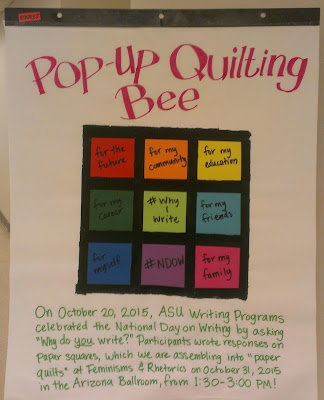 Pop-Up Quilting
Bee
for the
future
for my
community
for my
education
for my
career
#Why
I
Write
for my
friends
for
myself
#NDOW
for my
family
On October 20, 2015, ASU Writing Programs
celebrated the National Day on Writing by asking
"Why do you write?" Participants wrote responses on
Paper squares, which we are assembling into "paper
quilts" at Feminisms & Rhetorics on October 31, 2015
in the Arizona Ballroom, from 1:30-3:00 PM!